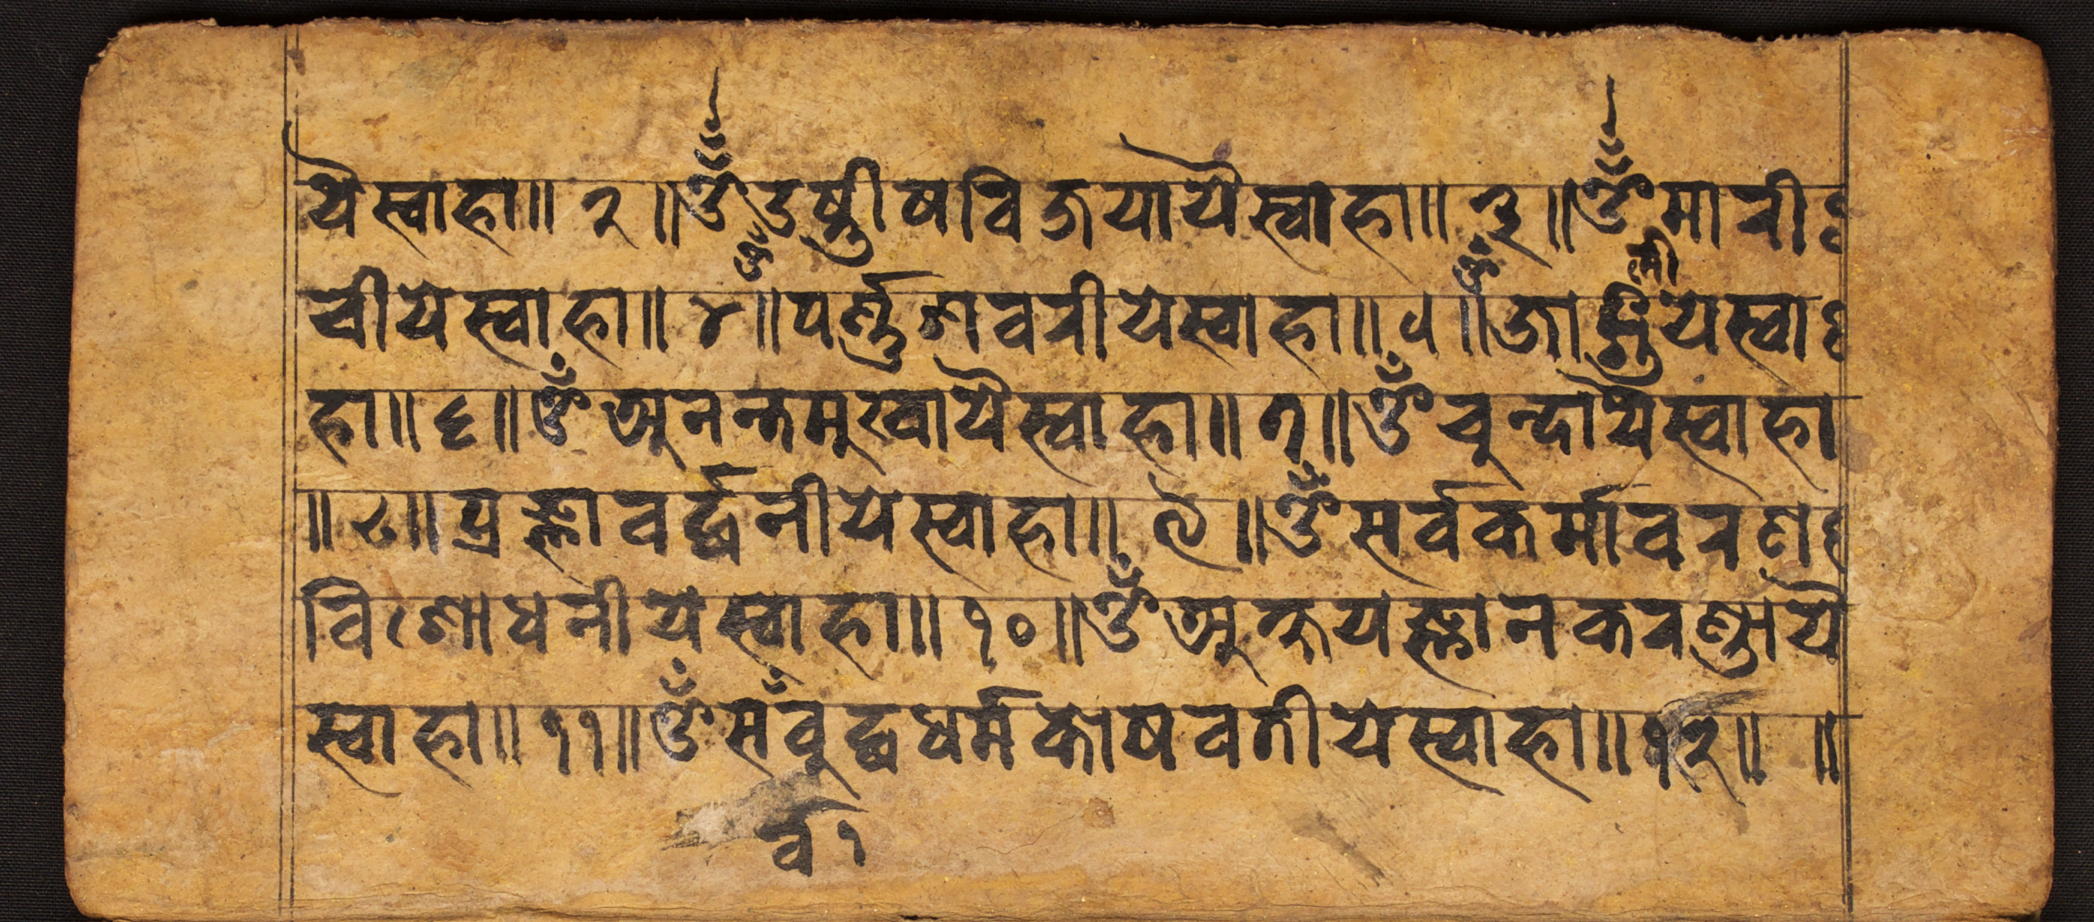 यै स्वाहा॥ २ ॥ ॐ उष्णीषविजयायै स्वाहा॥ ३ ॥ ॐ मारी
चीये स्वाहा॥ ४ ॥ ॐ पर्णशवरीये स्वाहा॥ ५ ॥ ॐ जाङ्गुलीये स्वा
हा॥ ६ ॥ ॐ अनन्तमुखायै स्वाहा॥ ७ ॥ ॐ चुन्दायै स्वाहा
॥ ८ ॥ प्रज्ञावर्द्धनीये स्वाहा॥ ९ ॥ ॐ सर्वकर्मावरण
विशोधनीये स्वाहा॥ १० ॥ ॐ अक्षयज्ञानकरण्डायै
स्वाहा॥ ११ ॥ ॐ सँवुद्धधर्मकोषवतीये स्वाहा॥ १२ ॥ ॥
र्व १